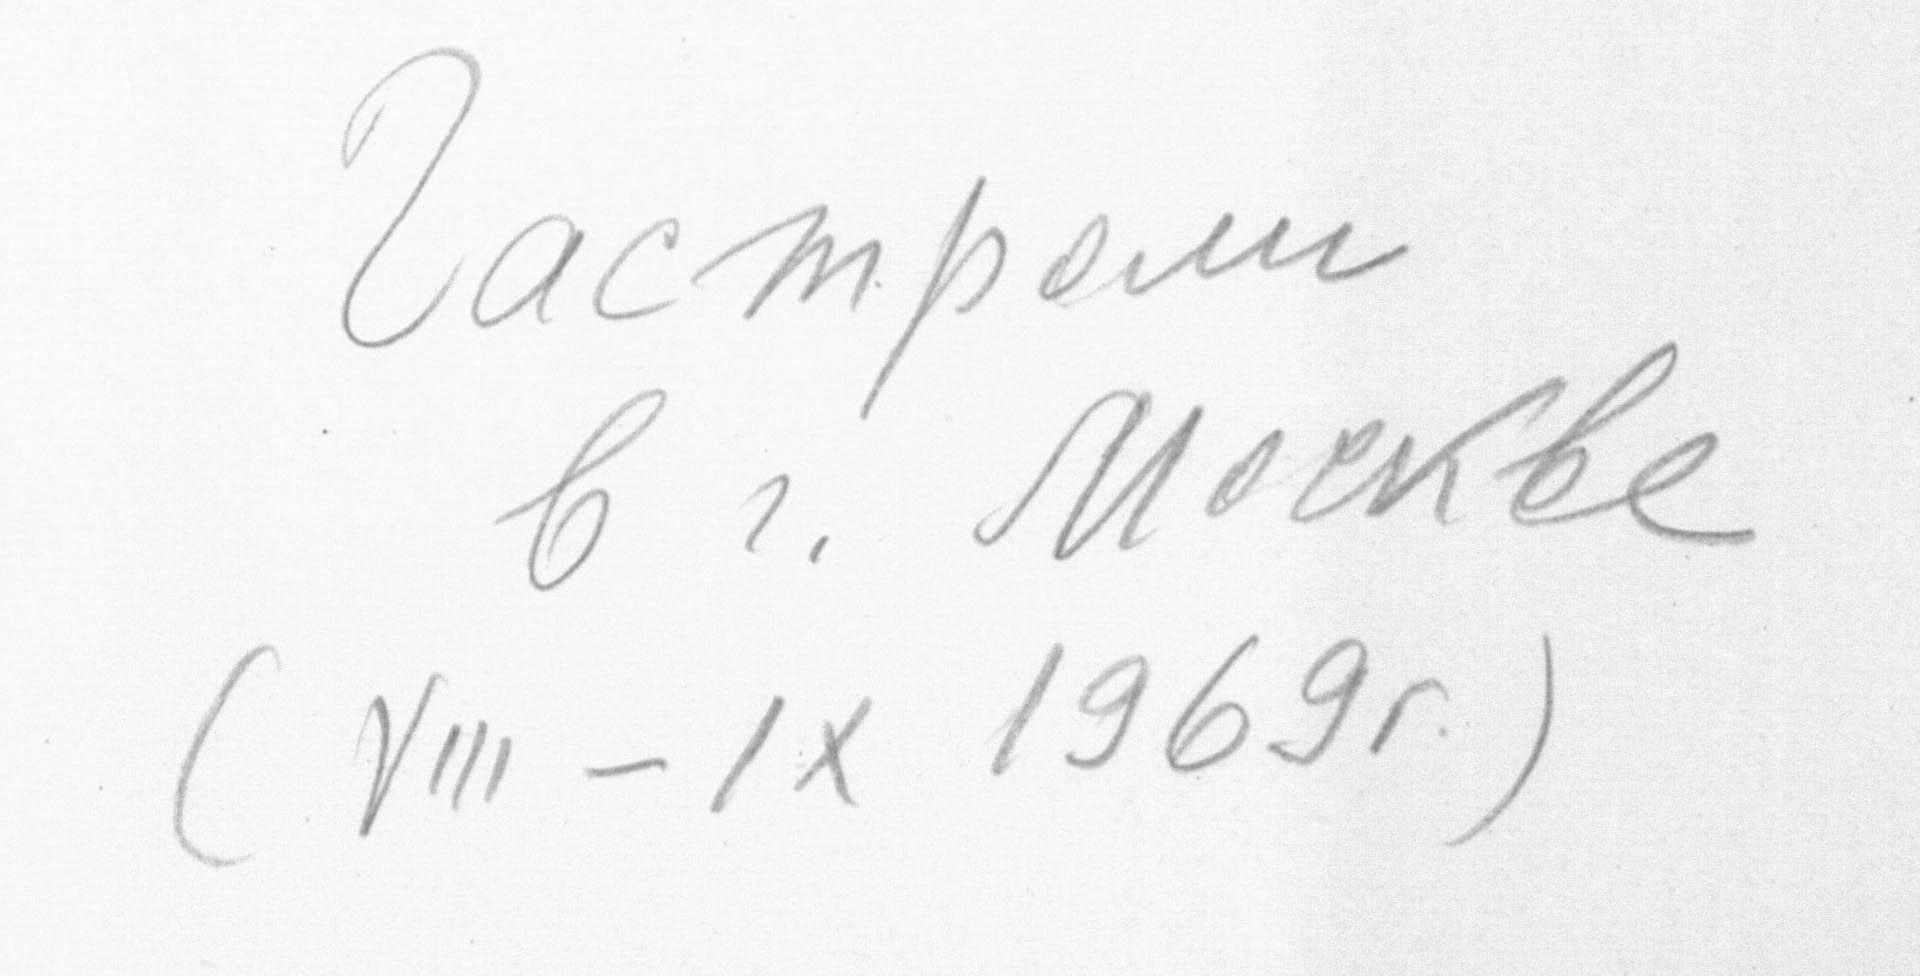 Гастроли
в г. Москве
(VIII – IX 1969г.)